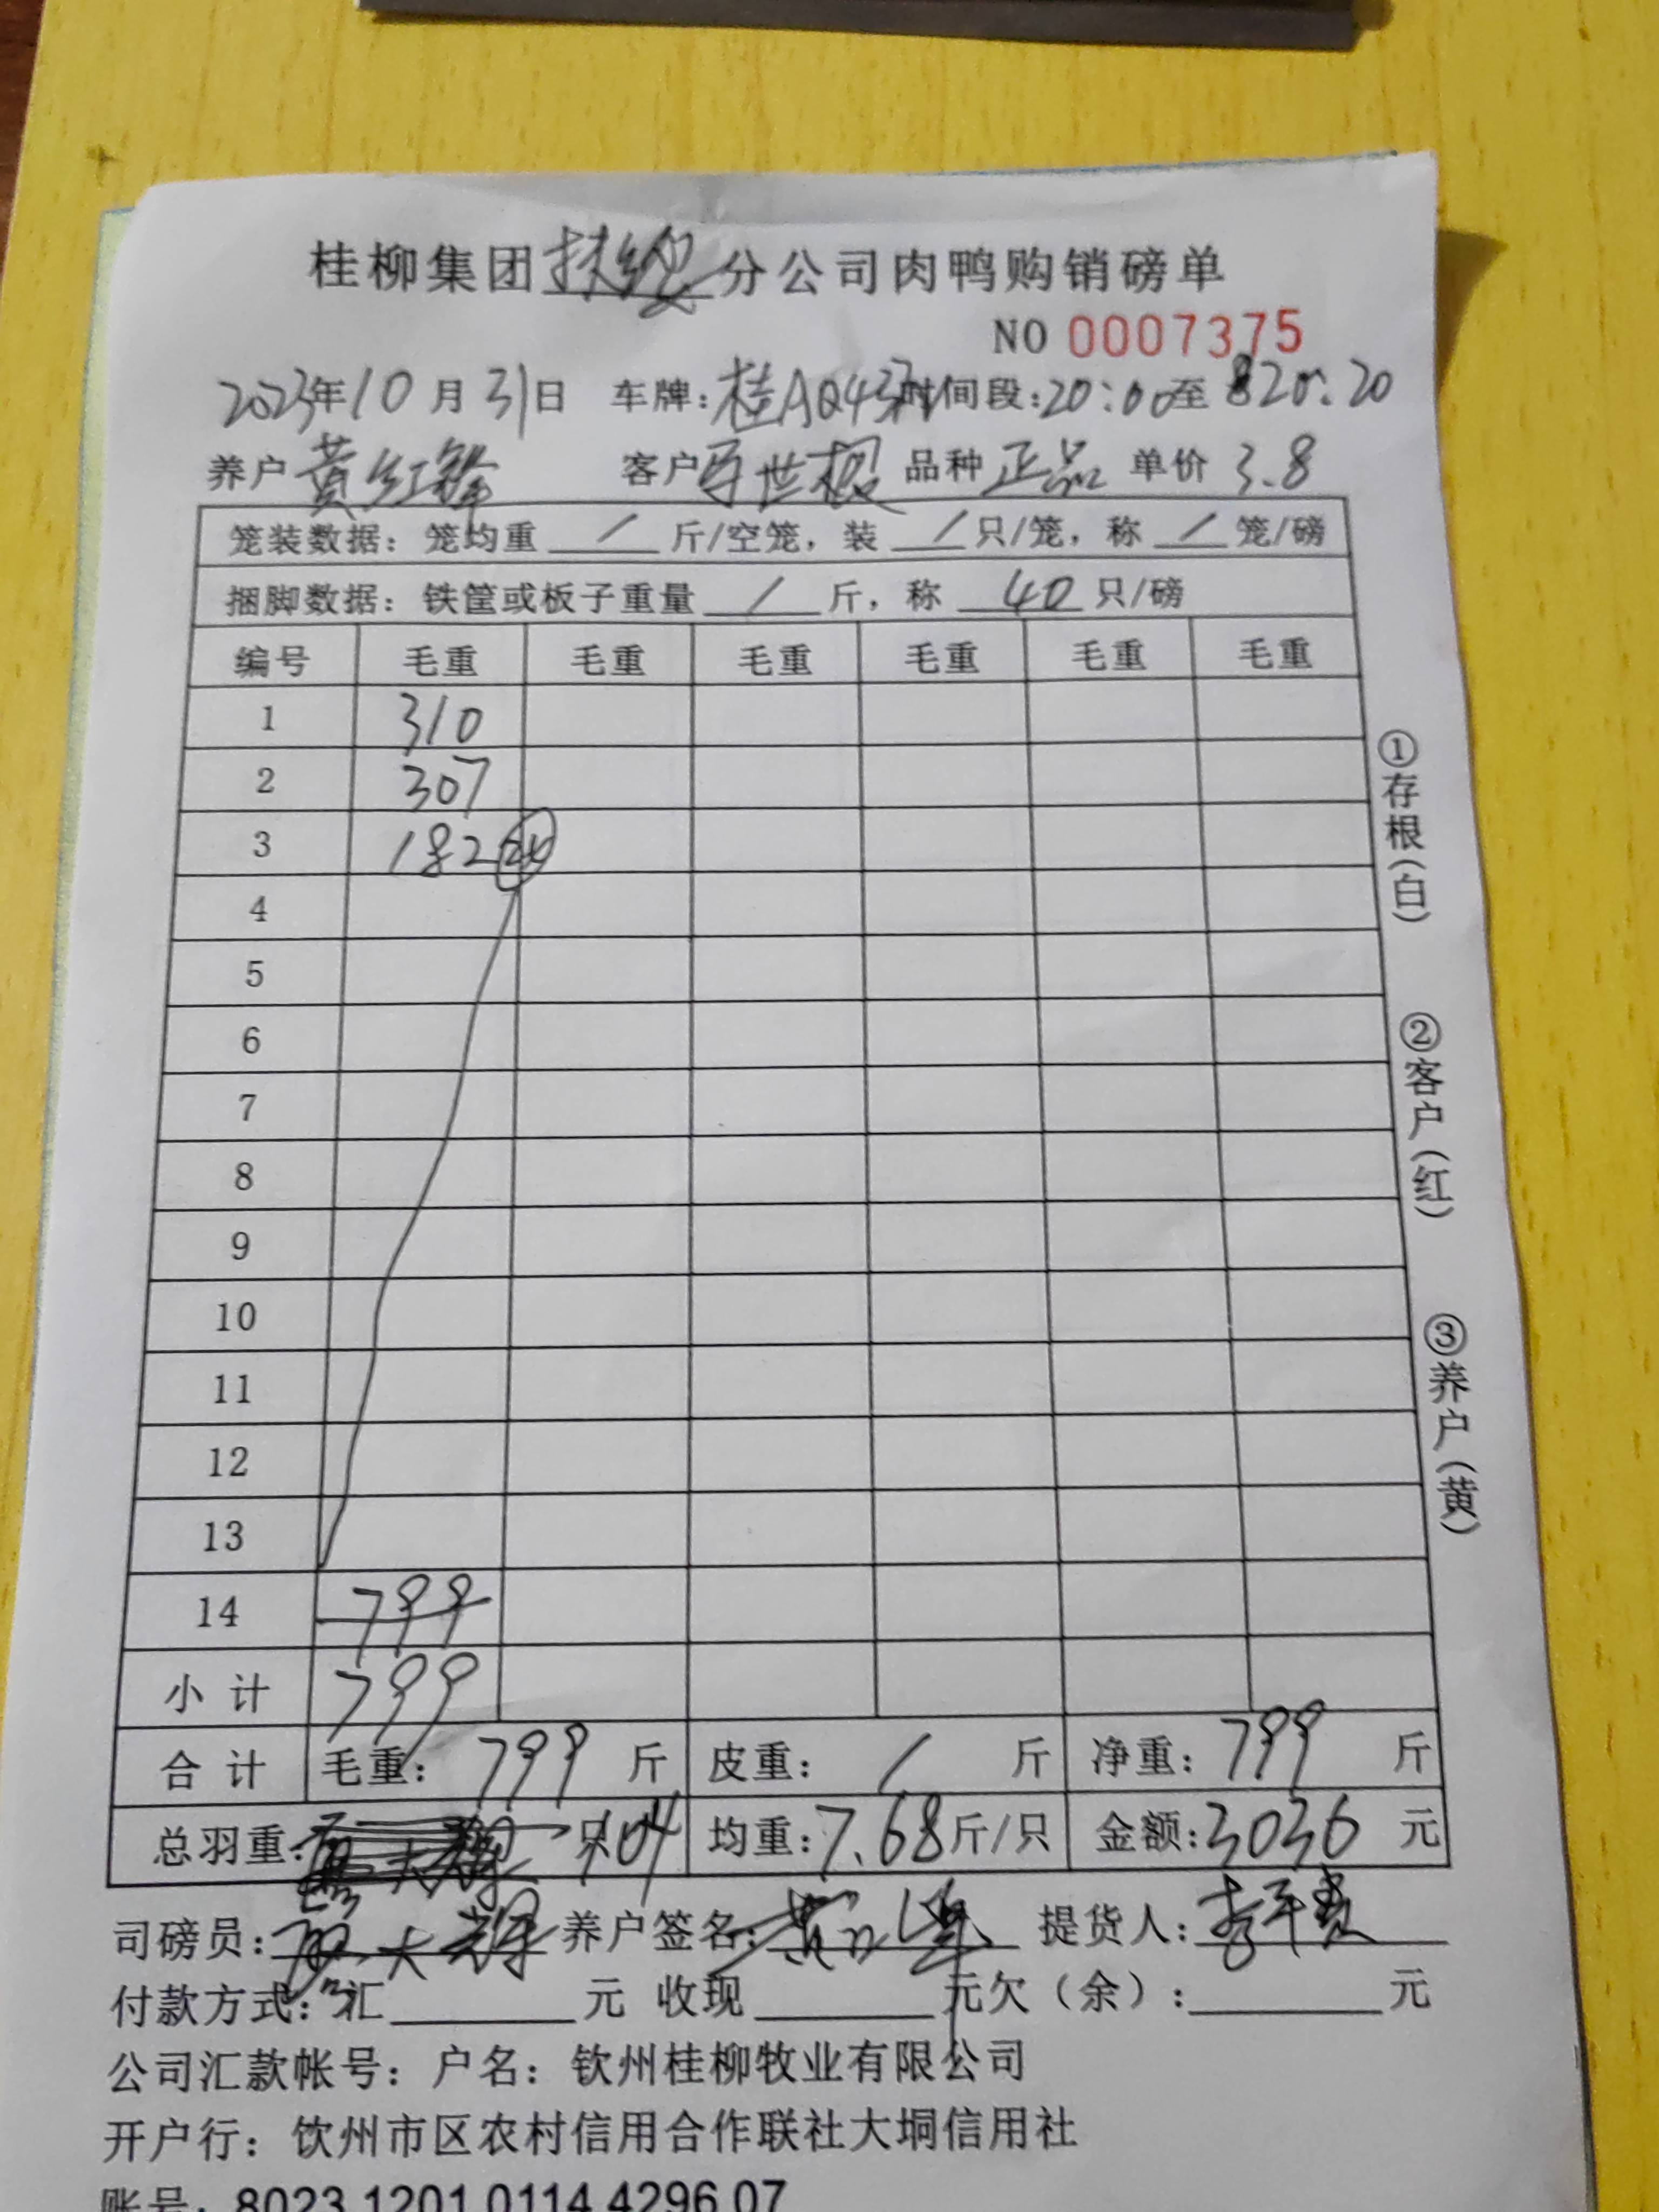 桂柳集团扶绥分公司肉鸭购销磅单
NO 0007375
2023年10月31日 车牌:桂AQ43 时间段:20:00至 20:20
养户 黄红锋 客户 世根 品种 正品 单价 3.8
笼装数据：笼均重 / 斤/空笼，装 / 只/笼，称 / 笼/磅
捆脚数据：铁筐或板子重量 / 斤，称 40 只/磅
编号 毛重 毛重 毛重 毛重 毛重 毛重
1 310
2 307
3 182 24
4
5
6
7
8
9
10
11
12
13
14 799
小计 799
合计 毛重：799 斤 皮重：/ 斤 净重：799 斤
总羽重: 只104 均重:7.68斤/只 金额:3036 元
司磅员: 大辉 养户签名: 提货人:李
付款方式：汇 元 收现 元欠（余）: 元
公司汇款帐号：户名：钦州桂柳牧业有限公司
开户行：钦州市区农村信用合作联社大垌信用社
账号：8023 1201 0114 4296 07
①存根(白)
②客户(红)
③养户(黄)